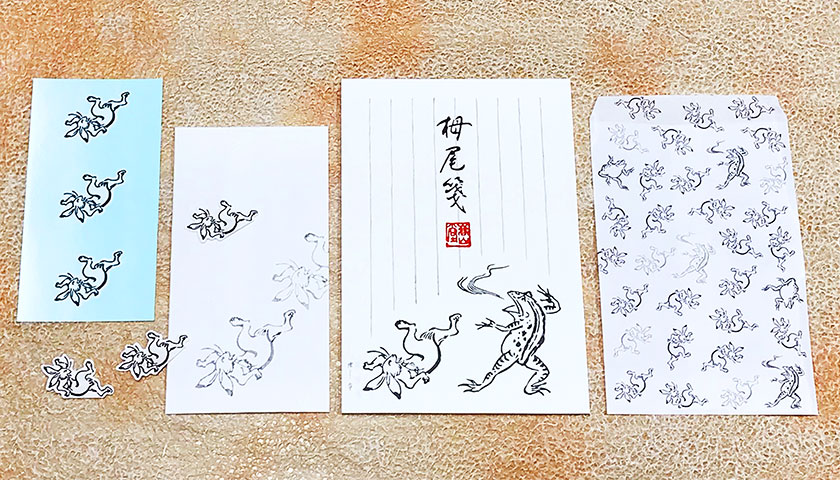 栂尾箋